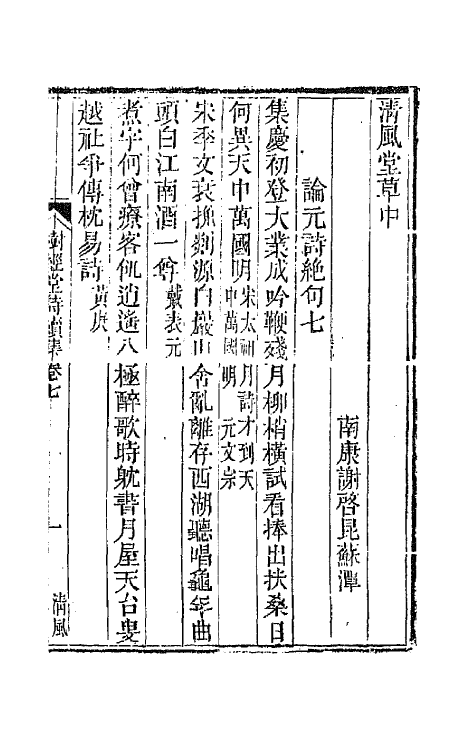 清風堂草中
南康謝啓昆蘇潭
論元詩絶句七
集慶初登大業成吟鞭殘月柳梢橫試看捧出扶桑日
何異天中萬國明宋太祖月詩才到天中萬國明 元文宗
宋季文衰振剡源白巖山舍亂離存西湖聽唱龜年曲
頭白江南酒一尊戴表元
煮字何曾療客飢逍遙八極醉歌時躭書月屋天台叟
越社爭傳枕易詩黃庚
樹經堂詩續集卷七
一
清風